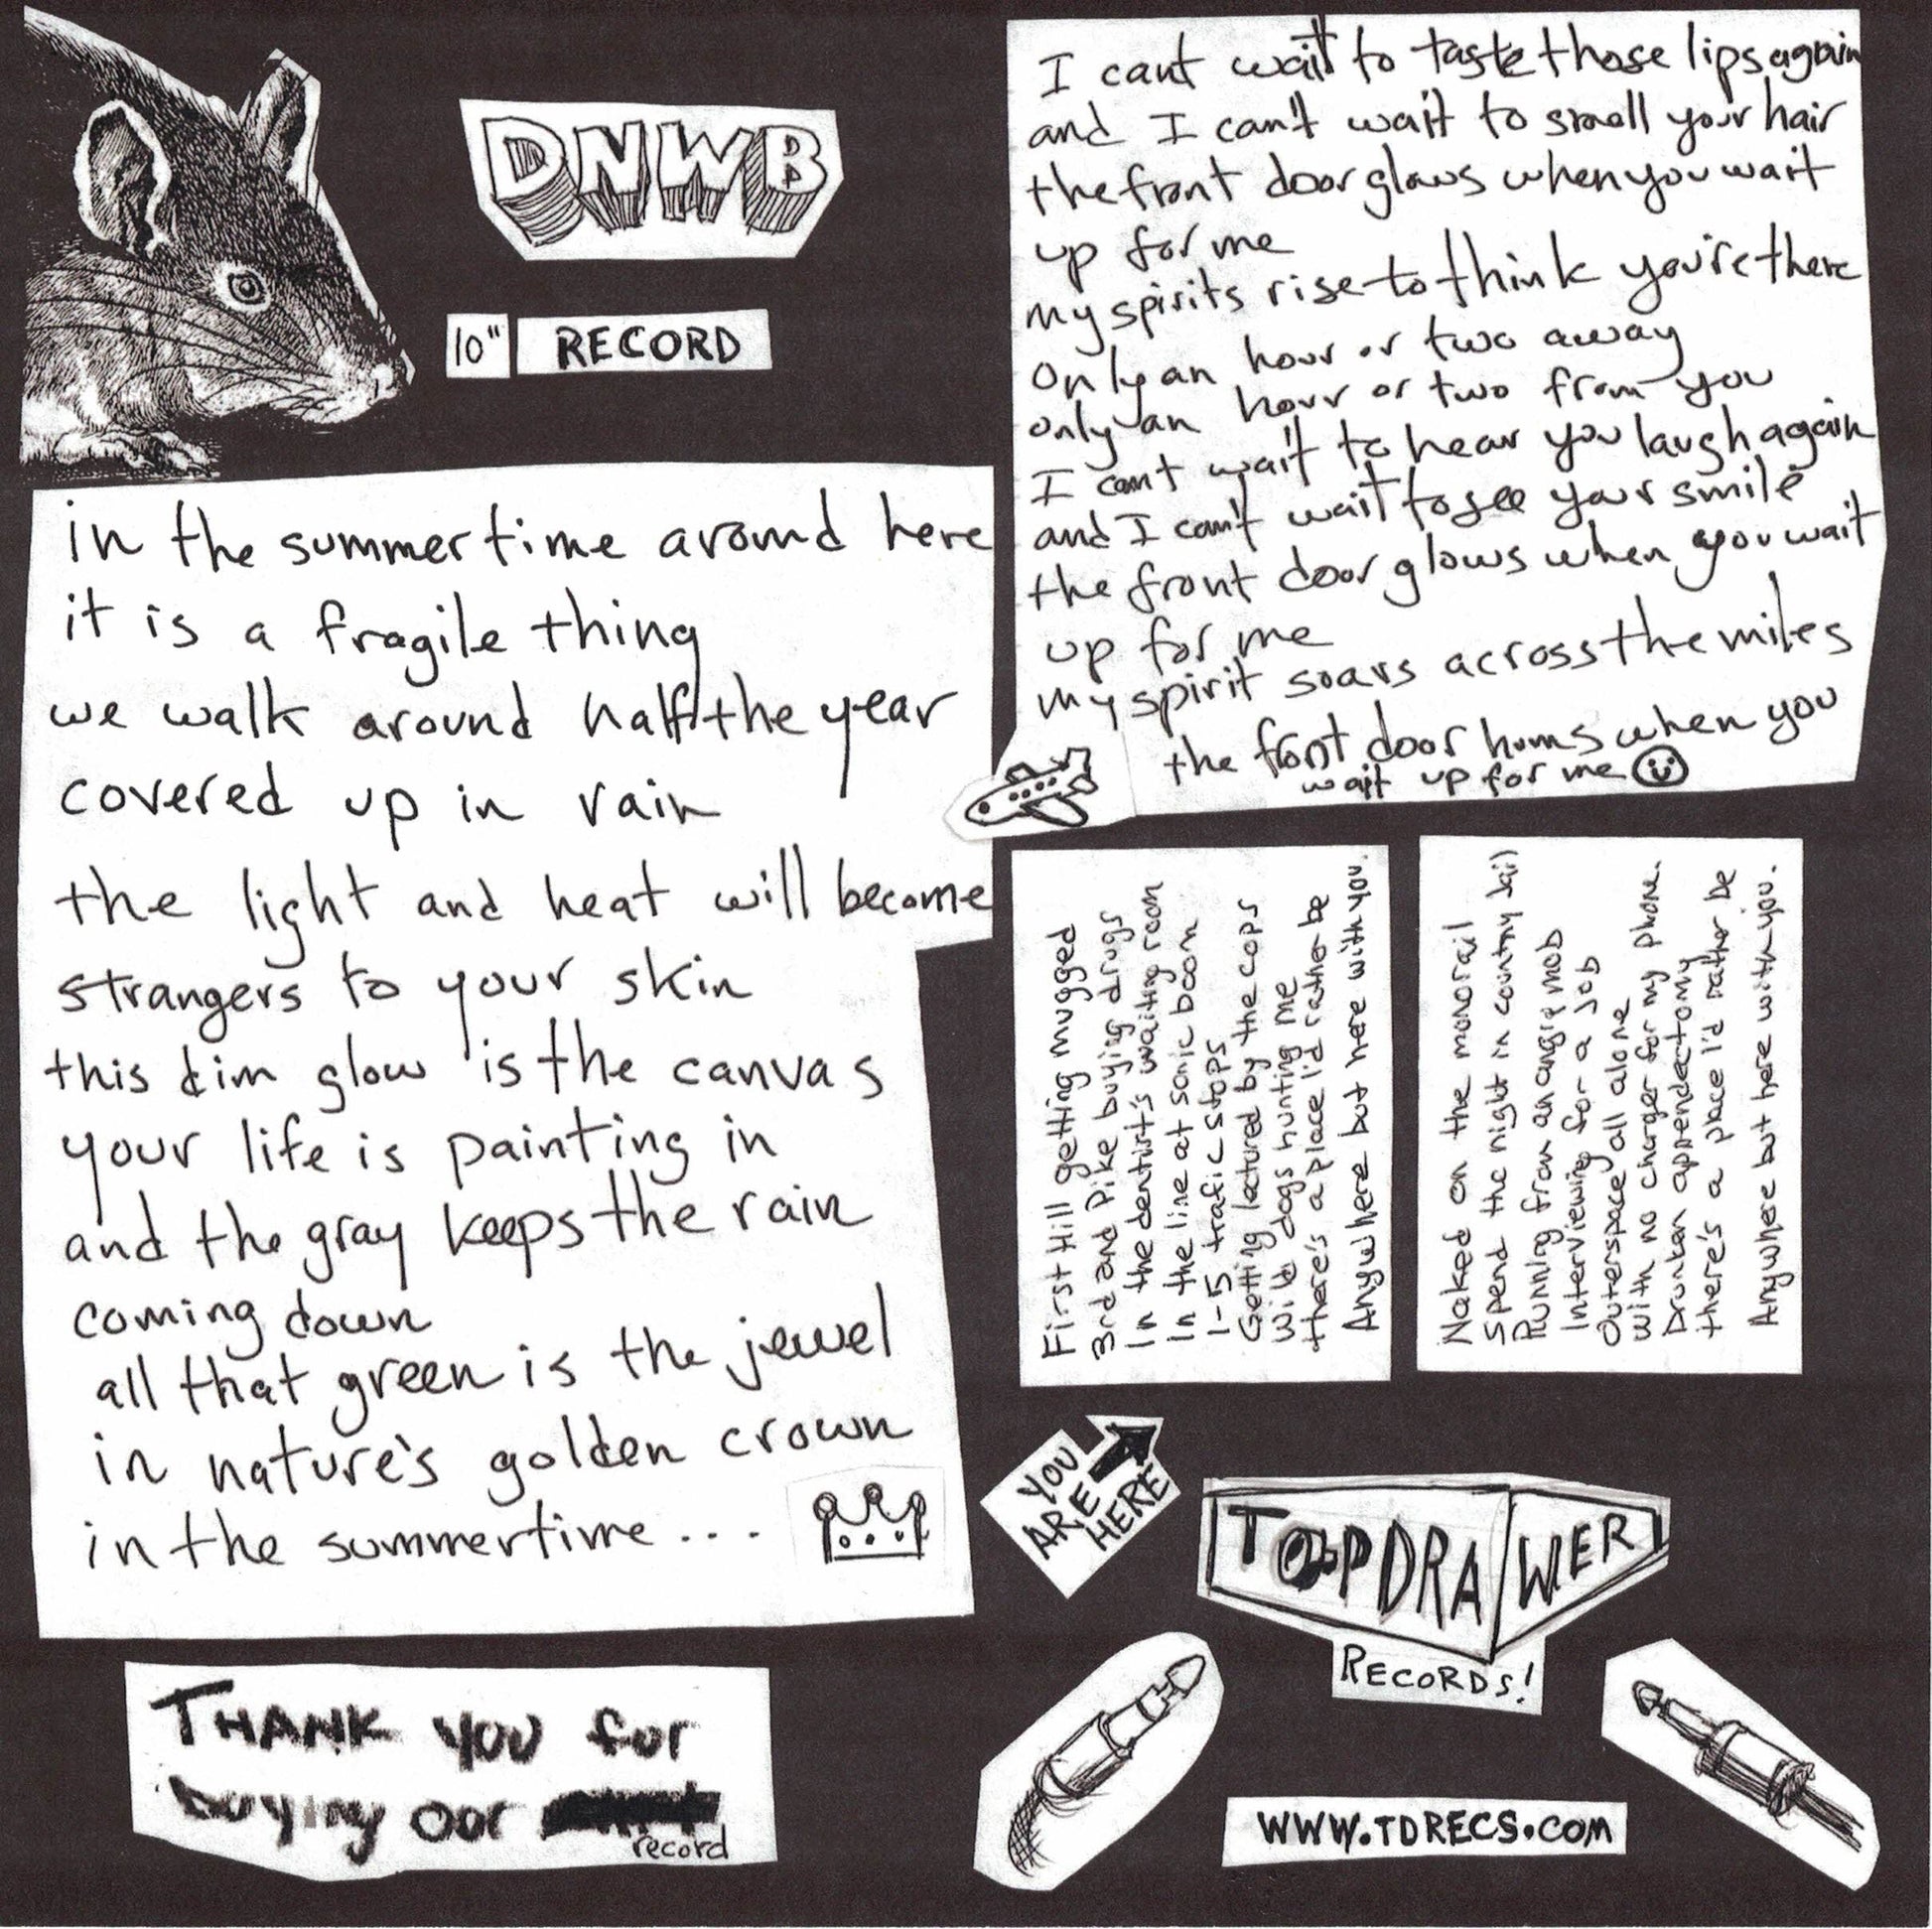 DNWB
10" RECORD
in the summertime around here
it is a fragile thing
we walk around half the year
covered up in rain
the light and heat will become
strangers to your skin
this dim glow is the canvas
your life is painting in
and the gray keeps the rain
coming down
all that green is the jewel
in nature's golden crown
in the summertime...
THANK YOU for
buying our
record
I cant wait to taste those lips again
and I can't wait to smell your hair
the front door glows when you wait
up for me
my spirits rise to think you're there
Only an hour or two away
only an hour or two from you
I cant wait to hear you laugh again
and I can't wait to see your smile
the front door glows when you wait
up for me
my spirit soars across the miles
the front door hums when you
wait up for me
First Hill getting mugged
3rd and Pike buying drugs
In the dentist's waiting room
In the line at sonic boom
I-5 trafic stops
Getting lectured by the cops
Wild dogs hunting me
there's a place I'd rather be
Anywhere but here with you.
Naked on the monorail
Spend the night in country Jail
Running from an angry mob
Interviewing for a Job
Outerspace all alone
With no charger for my phone.
Drunken appendectomy
there's a place I'd rather be
Anywhere but here with you.
YOU
ARE
HERE
TOPDRAWER
RECORDS!
WWW.TDRECS.COM